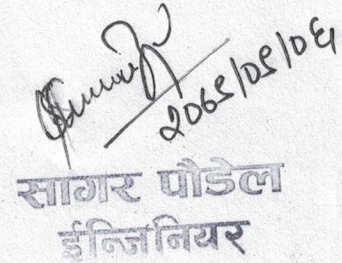 २०७९/०९/०६
सागर पौडेल
ईन्जिनियर